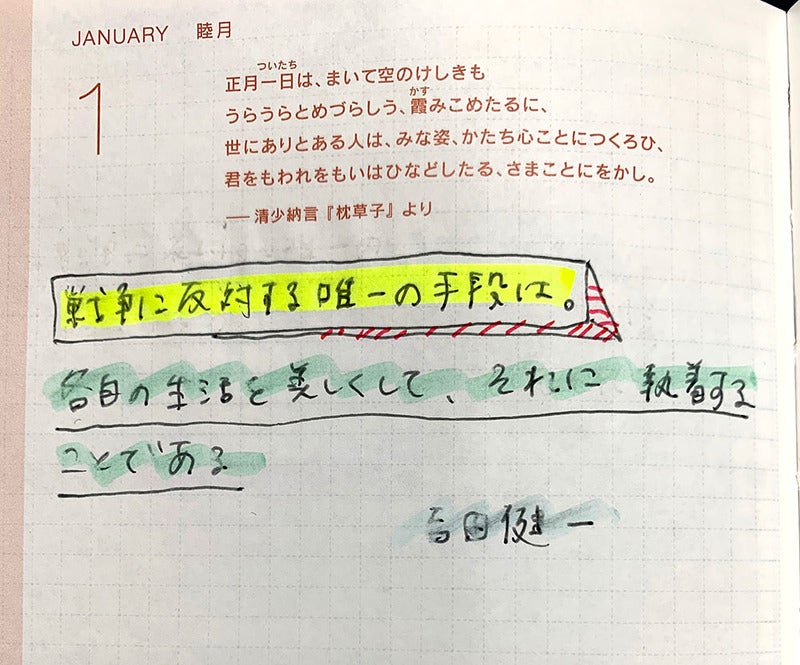 JANUARY 睦月
1
ついたち
正月一日は、まいて空のけしきも
かす
うらうらとめづらしう、霞みこめたるに、
世にありとある人は、みな姿、かたち心ことにつくろひ、
君をもわれをもいはひなどしたる、さまことにをかし。
── 清少納言『枕草子』より
戦争に反対する唯一の手段は。
各自の生活を美しくして、それに執着する
ことである
吉田健一